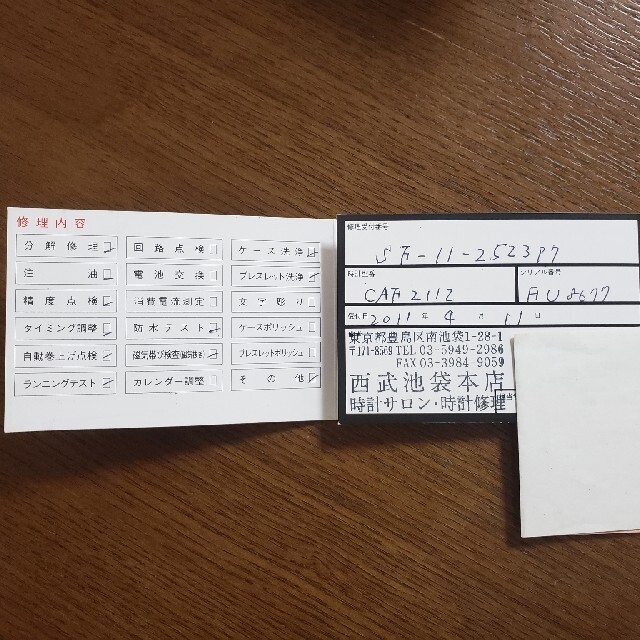 修理内容
分解修理
回路点検
ケース洗浄
注油
電池交換
ブレスレット洗浄
精度点検
消費電流測定
文字彫り
タイミング調整
防水テスト
ケースポリッシュ
自動巻上げ点検
磁気帯び検査(磁気抜き)
ブレスレットポリッシュ
ランニングテスト
カレンダー調整
その他
修理受付番号
SF-11-252397
時計型番
シリアル番号
CAF2112
受付日 2011年 4月 11日
東京都豊島区南池袋1-28-1
〒171-8569 TEL 03-5949-2986
FAX 03-3984-9059
西武池袋本店
時計サロン・時計修理